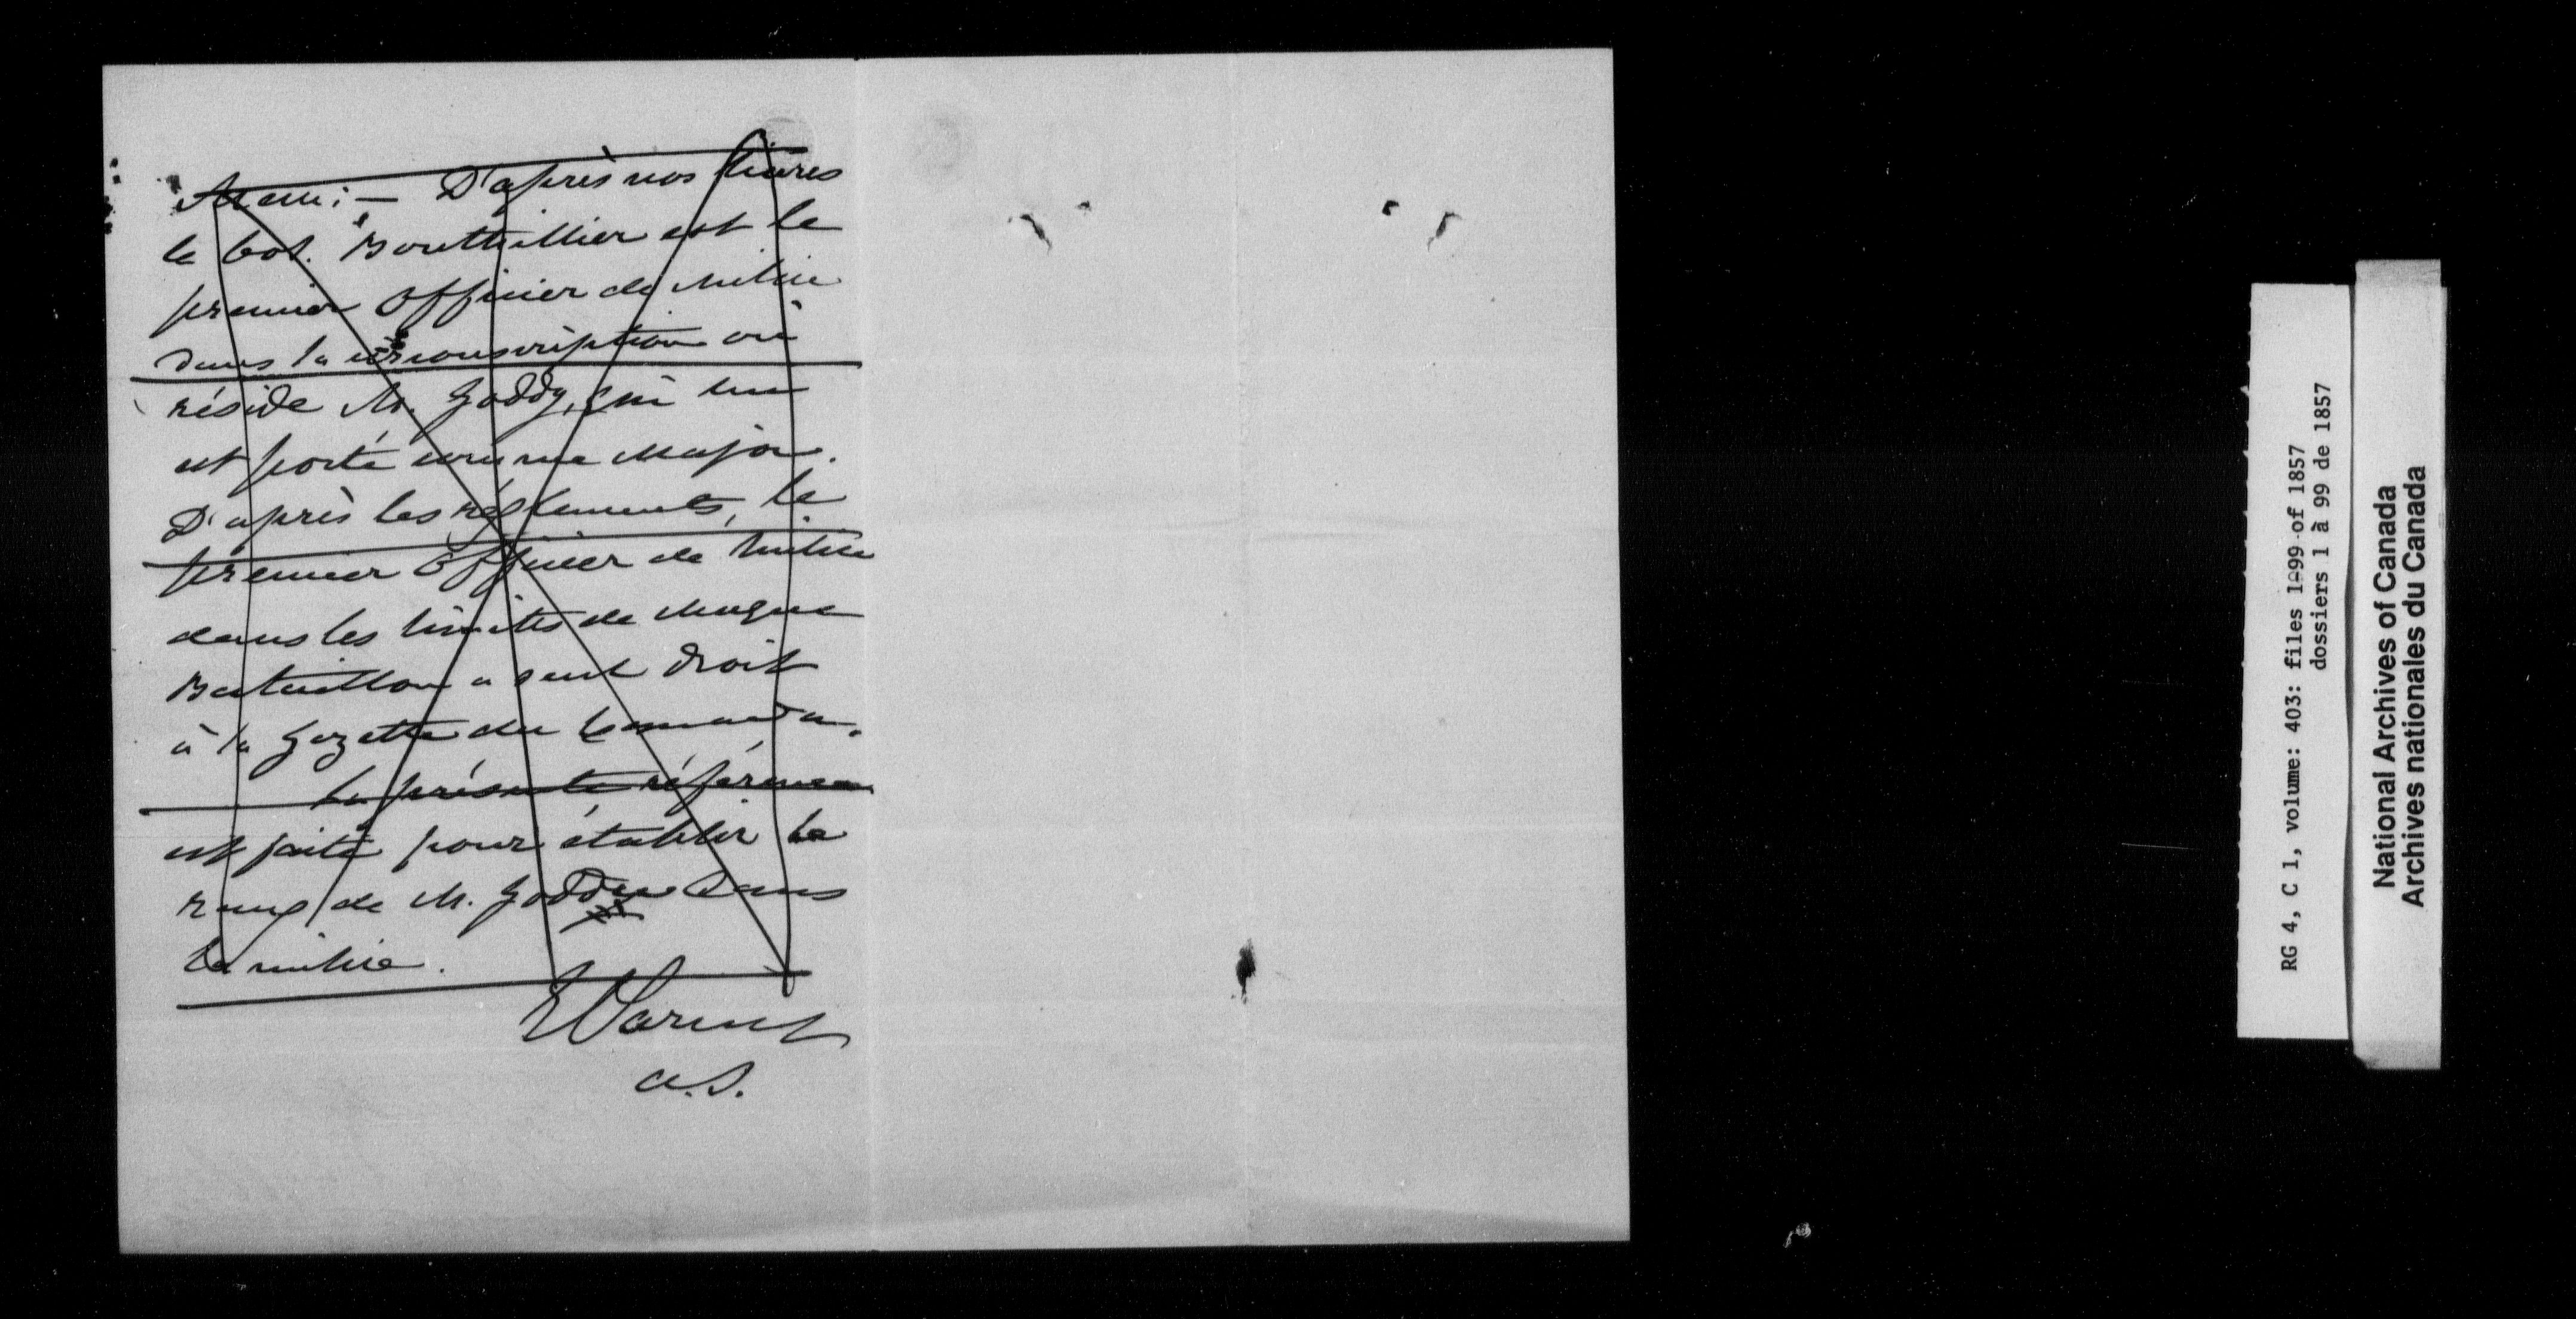 Mem: — D'après nos livres
le Col. Bouthillier est le
premier officier de milice
dans la circonscription où
réside M. Goddu, qui lui
est porté comme Major.
D'après les règlements, le
premier officier de milice
dans les limites de chaque
Bataillon a seul droit
à la Gazette du Canada.
La présente référence
est faite pour établir le
rang de M. Goddu dans
la milice.
E Parent
A.S.
RG 4, C 1, volume: 403: files 1-99 of 1857
dossiers 1 à 99 de 1857
National Archives of Canada
Archives nationales du Canada